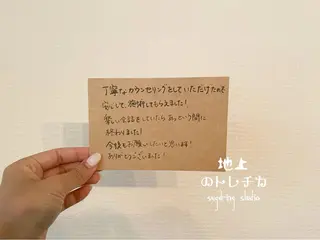 丁寧なカウンセリングをしていただけたので
安心して、施術してもらえました!
楽しい会話をしていたらあっという間に
終わりました!
今後もお願いしたいと思います!
ありがとうございました!
地上
のトレチカ
studio